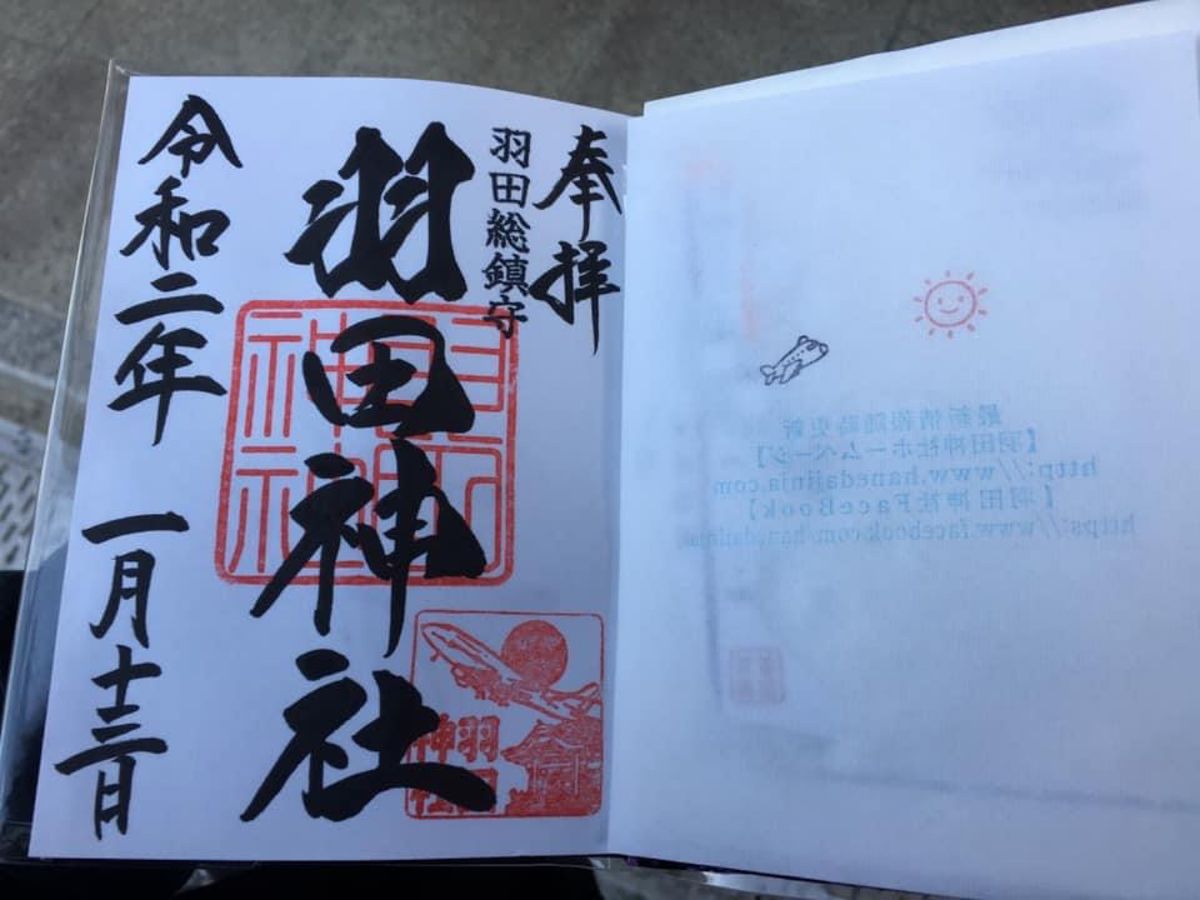 奉拝
羽田総鎮守
羽田神社
令和二年 一月十三日
羽田神社
羽田神社
最新情報随時更新
【羽田神社ホームページ】
http://www.hanedajinja.com
【羽田神社FaceBook】
https://www.facebook.com/hanedajinja